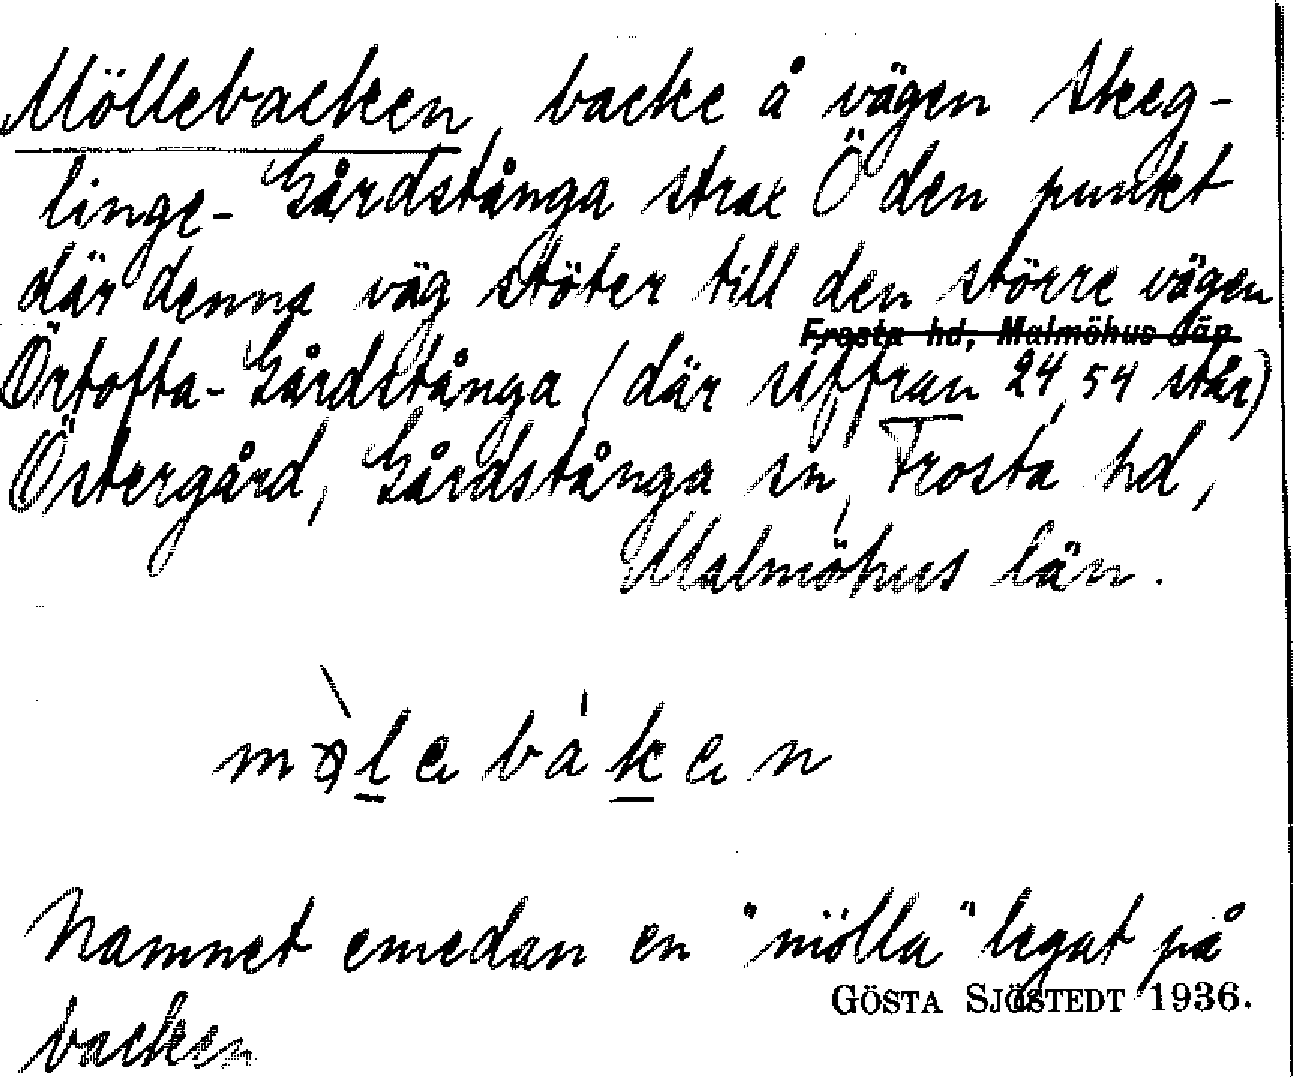 Möllebacken, backe å vägen Skeg-
linge- Gårdstånga strax Ö den punkt
där denna väg stöter till den större vägen
Frosta hd, Malmöhus län
Örtofta- Gårdstånga (där siffran 24,54 står)
Östergård, Gårdstånga sn, Frosta hd,
Malmöhus län.
Namnet emedan en "mölla" legat på
GÖSTA SJÖSTEDT 1936.
backen